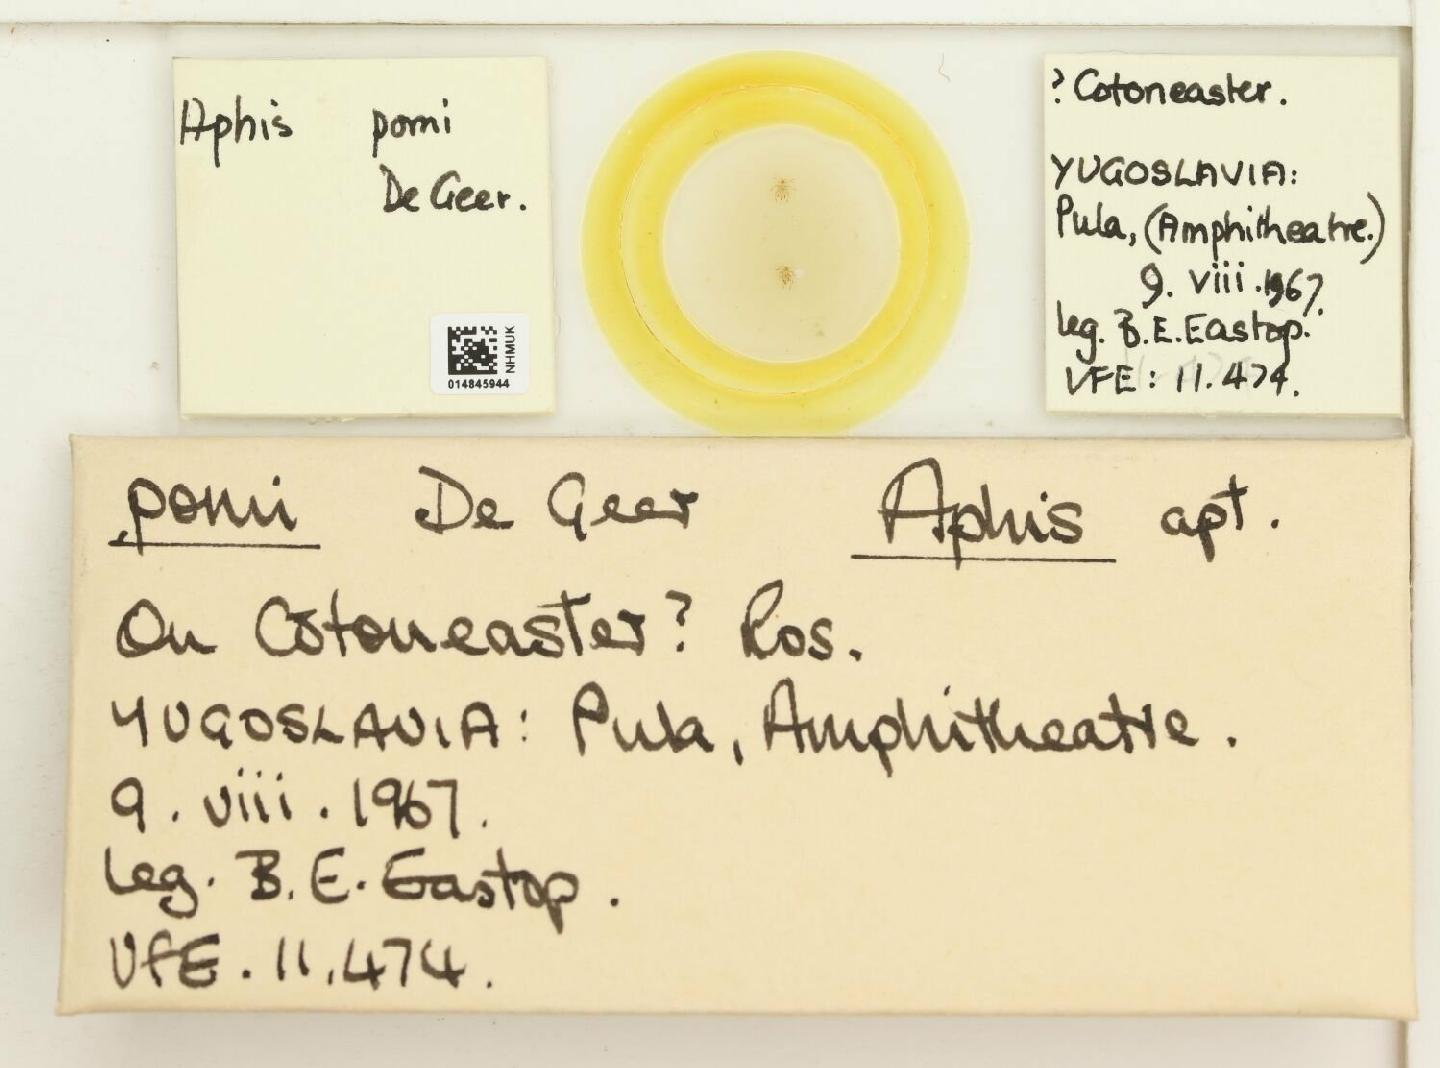 Aphis pomi
De Geer.
NHMUK
014845944
? Cotoneaster.
YUGOSLAVIA:
Pula, (Amphitheatre.)
9. viii. 1967.
leg. B.E. Eastop.
VFE: 11.474.
pomi De Geer Aphis apt.
On Cotoneaster? Ros.
YUGOSLAVIA: Pula, Amphitheatre.
9. viii. 1967.
leg. B.E. Eastop.
VFE. 11,474.